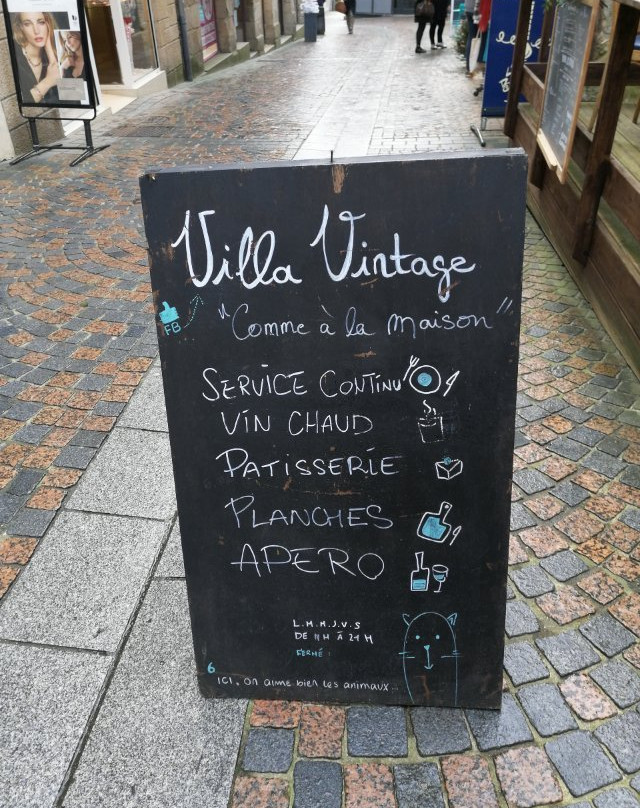 Villa Vintage
FB
"Comme à la maison"
SERVICE CONTINU
VIN CHAUD
PATISSERIE
PLANCHES
APERO
L.M.M.J.V.S
DE 11H À 21H
FERMÉ :
6
ICI, on aime bien les animaux...